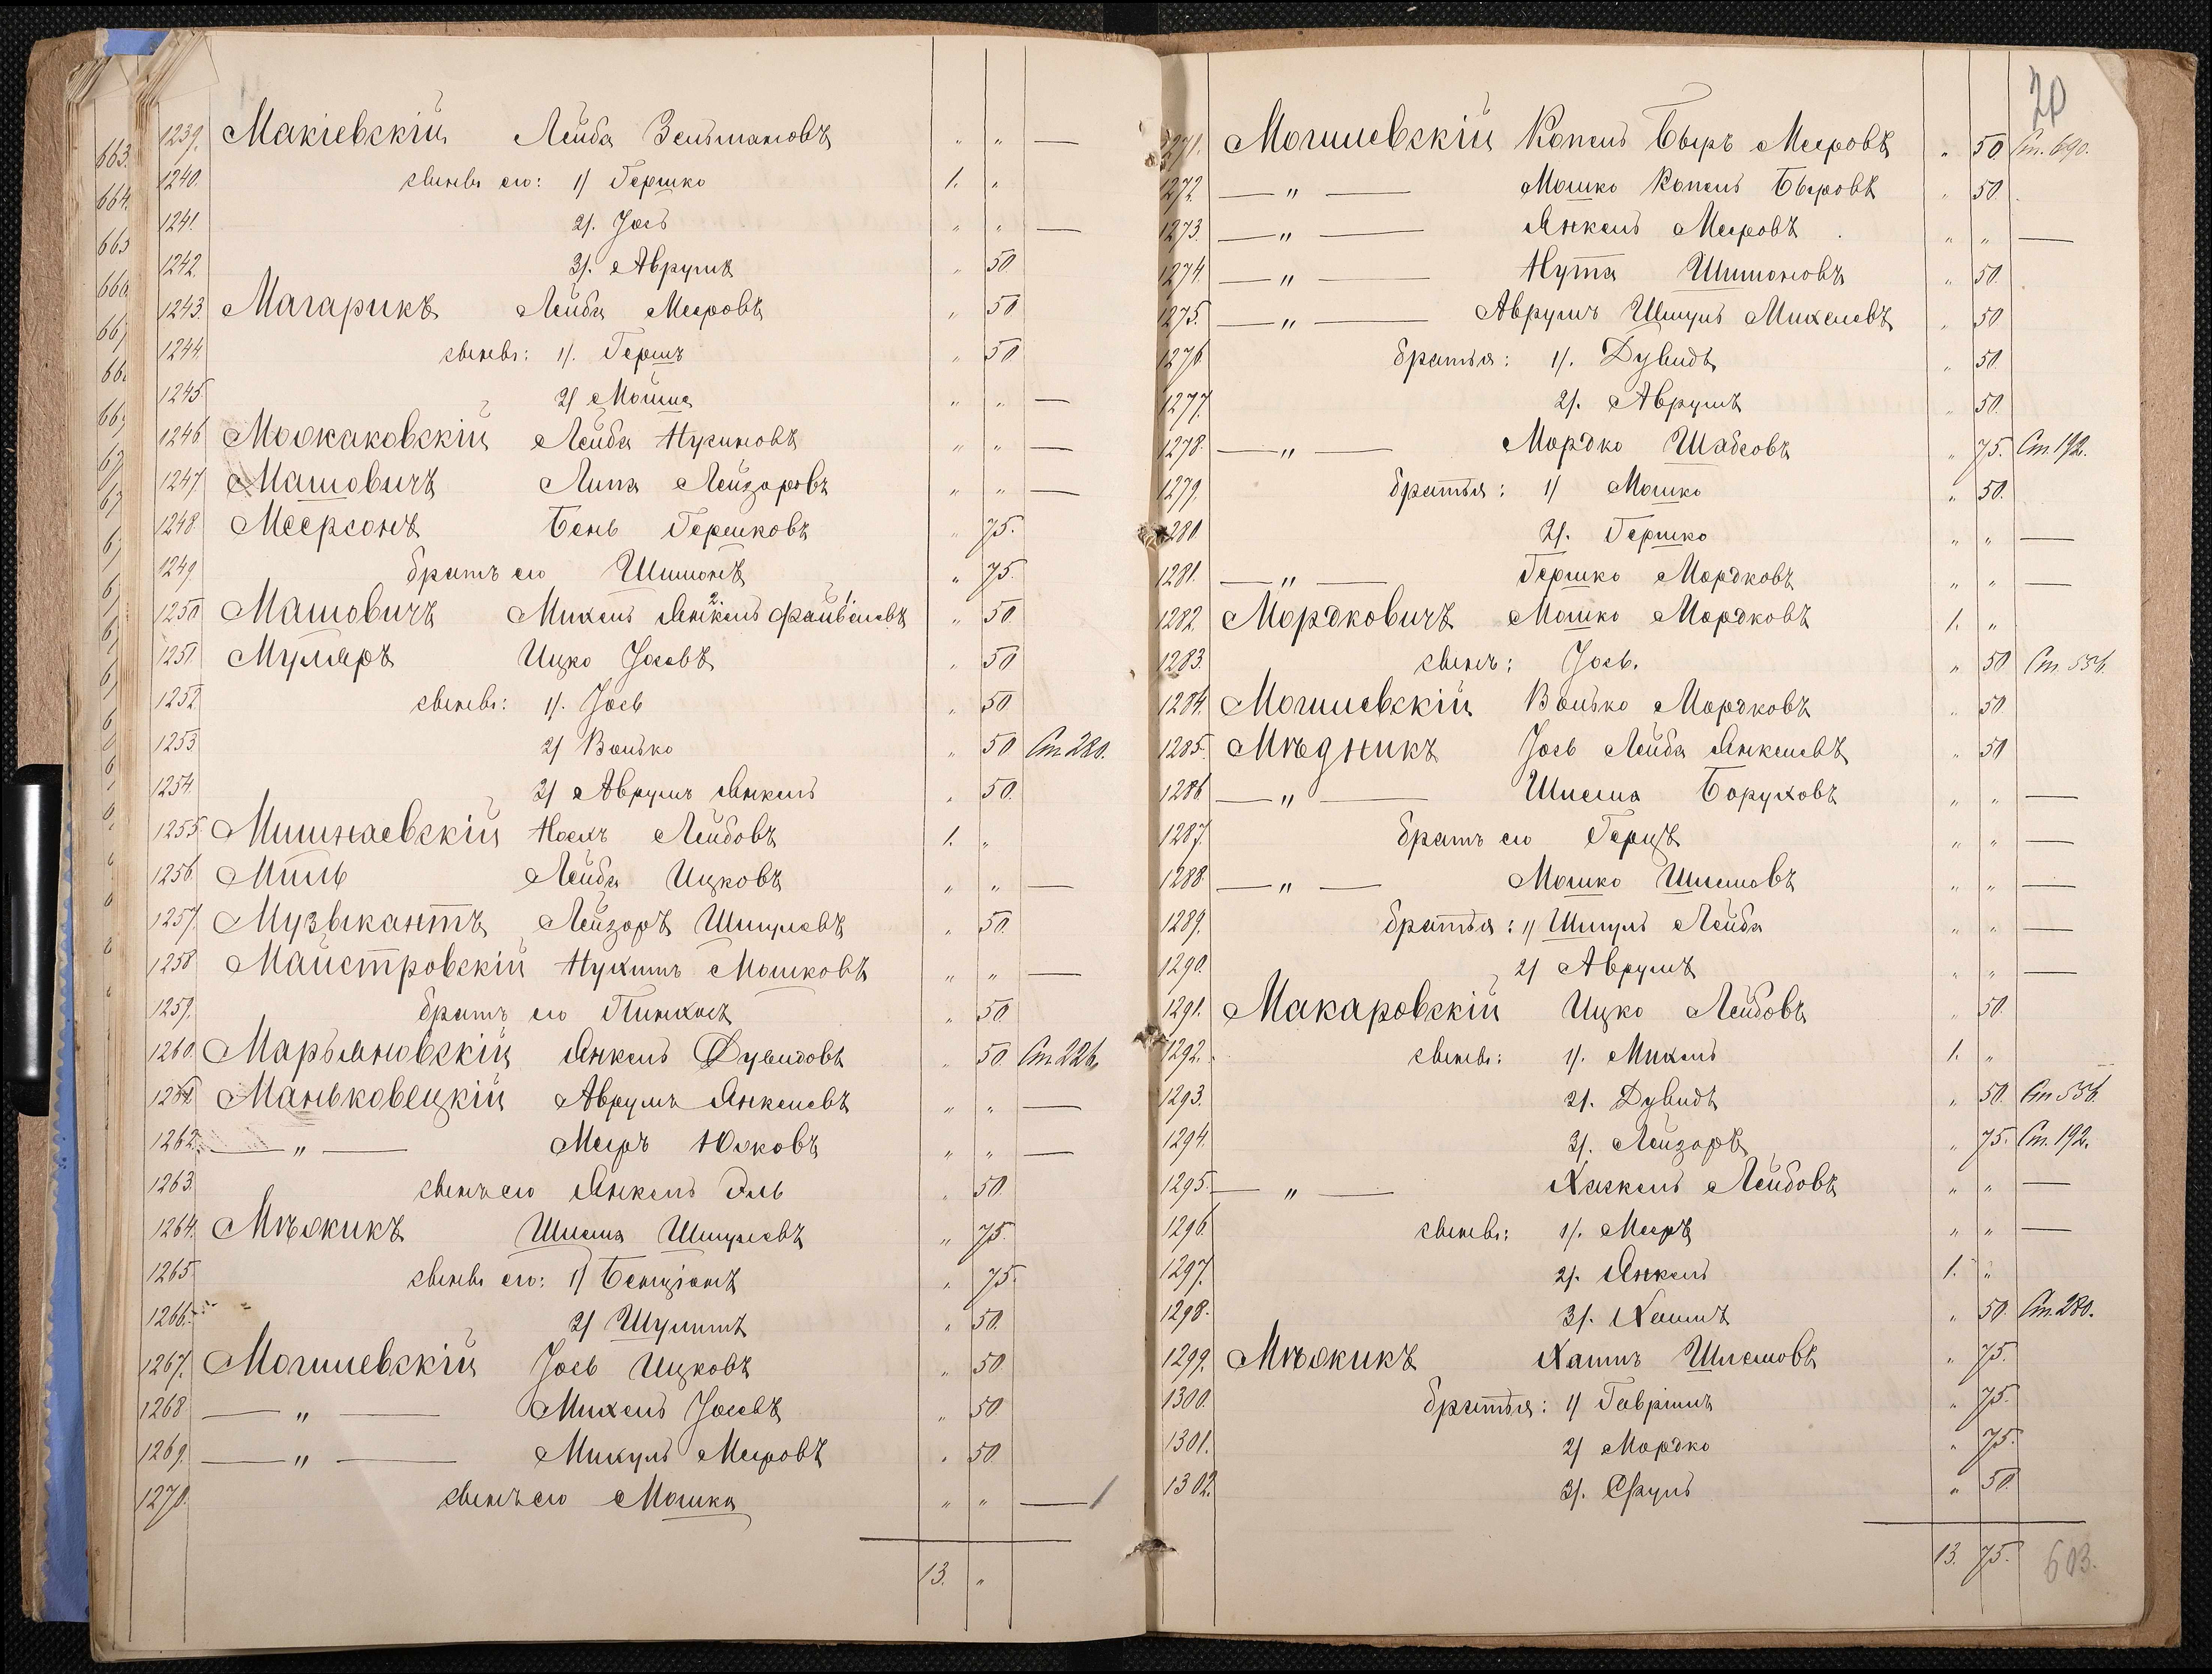 1239. Макіевскій Лейба Зельмановъ " " —
1240. сыновья его: 1/ Гершко 1. "
1241. 2/. Іось " " —
1242. 3/. Аврумъ " 50
1243. Магарикъ Лейба Мееровъ " 50
1244 сыновья: 1/. Гершъ " 50
1245. 2/ Мойше " " —
1246 Можаковскій Лейба Нусиновъ " " —
1247. Машовичъ Липа Лейзоровъ " " —
1248. Меерсонъ Бень Гершковъ " 75.
1249 братъ его Шимонъ " 75.
1250 Машовичъ Михель Янкель Файвелевъ " 50
1251 Муляръ Ицко Іосевъ " 50
1252 сыновья: 1/. Іось " 50
1253 2/ Волько " 50 Ст. 280.
1254. 3/ Аврумъ Янкель " 50.
1255. Мишнаевскій Носъ Лейбовъ 1. "
1256. Миль Лейба Ицковъ " " —
1257. Музыкантъ Лейзоръ Шмулевъ " 50.
1258 Маистровскій Нухимъ Мошковъ " " —
1259. братъ его Пинхосъ " 50
1260. Марьяновскій Янкель Дувидовъ " 50. Ст. 226.
1261 Маньковецкій Аврумъ Янкелевъ " " —
1262. — " — Меиръ Юсковъ " " —
1263. сынъ его Янкель Эль " 50.
1264. Мѣжикъ Шлема Шмулевъ " 75.
1265 сыновья его: 1/ Бенціонъ " 75.
1266. 2/ Шулимъ " 50.
1267. Могилевскій Іось Ицковъ " 50
1268 — " — Михель Іосевъ " 50
1269. — " — Микуль Мееровъ " 50
1270. сынъ его Мошка " " —
13. "
20
1271. Могилевскій Копель Беръ Мееровъ " 50 Ст. 690.
1272. — " — Мошко Копель Беровъ " 50.
1273. — " — Янкель Мееровъ " " —
1274. — " — Нута Шимоновъ " 50.
1275. — " — Аврумъ Шмуль Михелевъ " 50
1276 братья: 1/. Дувидъ " 50.
1277. 2/. Аврумъ " 50.
1278. — " — Мордко Шабсовъ " 75. Ст. 192.
1279. братья: 1/ Мошко " 50.
1280 2/. Гершко " " —
1281. — " — Гершко Мордковъ " " —
1282. Мордковичъ Мошко Мордковъ 1. "
1283. сынъ: Іось. " 50 Ст. 556.
1284. Могилевскій Волько Мордковъ " 50.
1285. Мѣдникъ Іось Лейба Янкелевъ " 50
1286 — " — Шлема Боруховъ " " —
1287. братъ его Герцъ " " —
1288 — " — Мошко Шлемовъ " " —
1289. братья: 1/ Шмуль Лейба " " —
1290. 2/ Аврумъ " " —
1291. Макаровскій Ицко Лейбовъ " 50.
1292. сыновья: 1/. Михель 1. "
1293. 2/. Дувидъ " 50. Ст 556.
1294. 3/. Лейзоръ " 75. Ст. 192.
1295. — " — Хаскель Лейбовъ " " —
1296. сыновья: 1/. Мееръ " " —
1297. 2/. Янкель 1. "
1298. 3/. Хаимъ " 50. Ст. 280.
1299. Мѣжикъ Хаимъ Шлемовъ " 75.
1300. братья: 1/ Гавріилъ " 75.
1301. 2/ Мордко " 75.
1302. 3/. Сруль " 50.
13. 75. 603.
663.
664.
665
666.